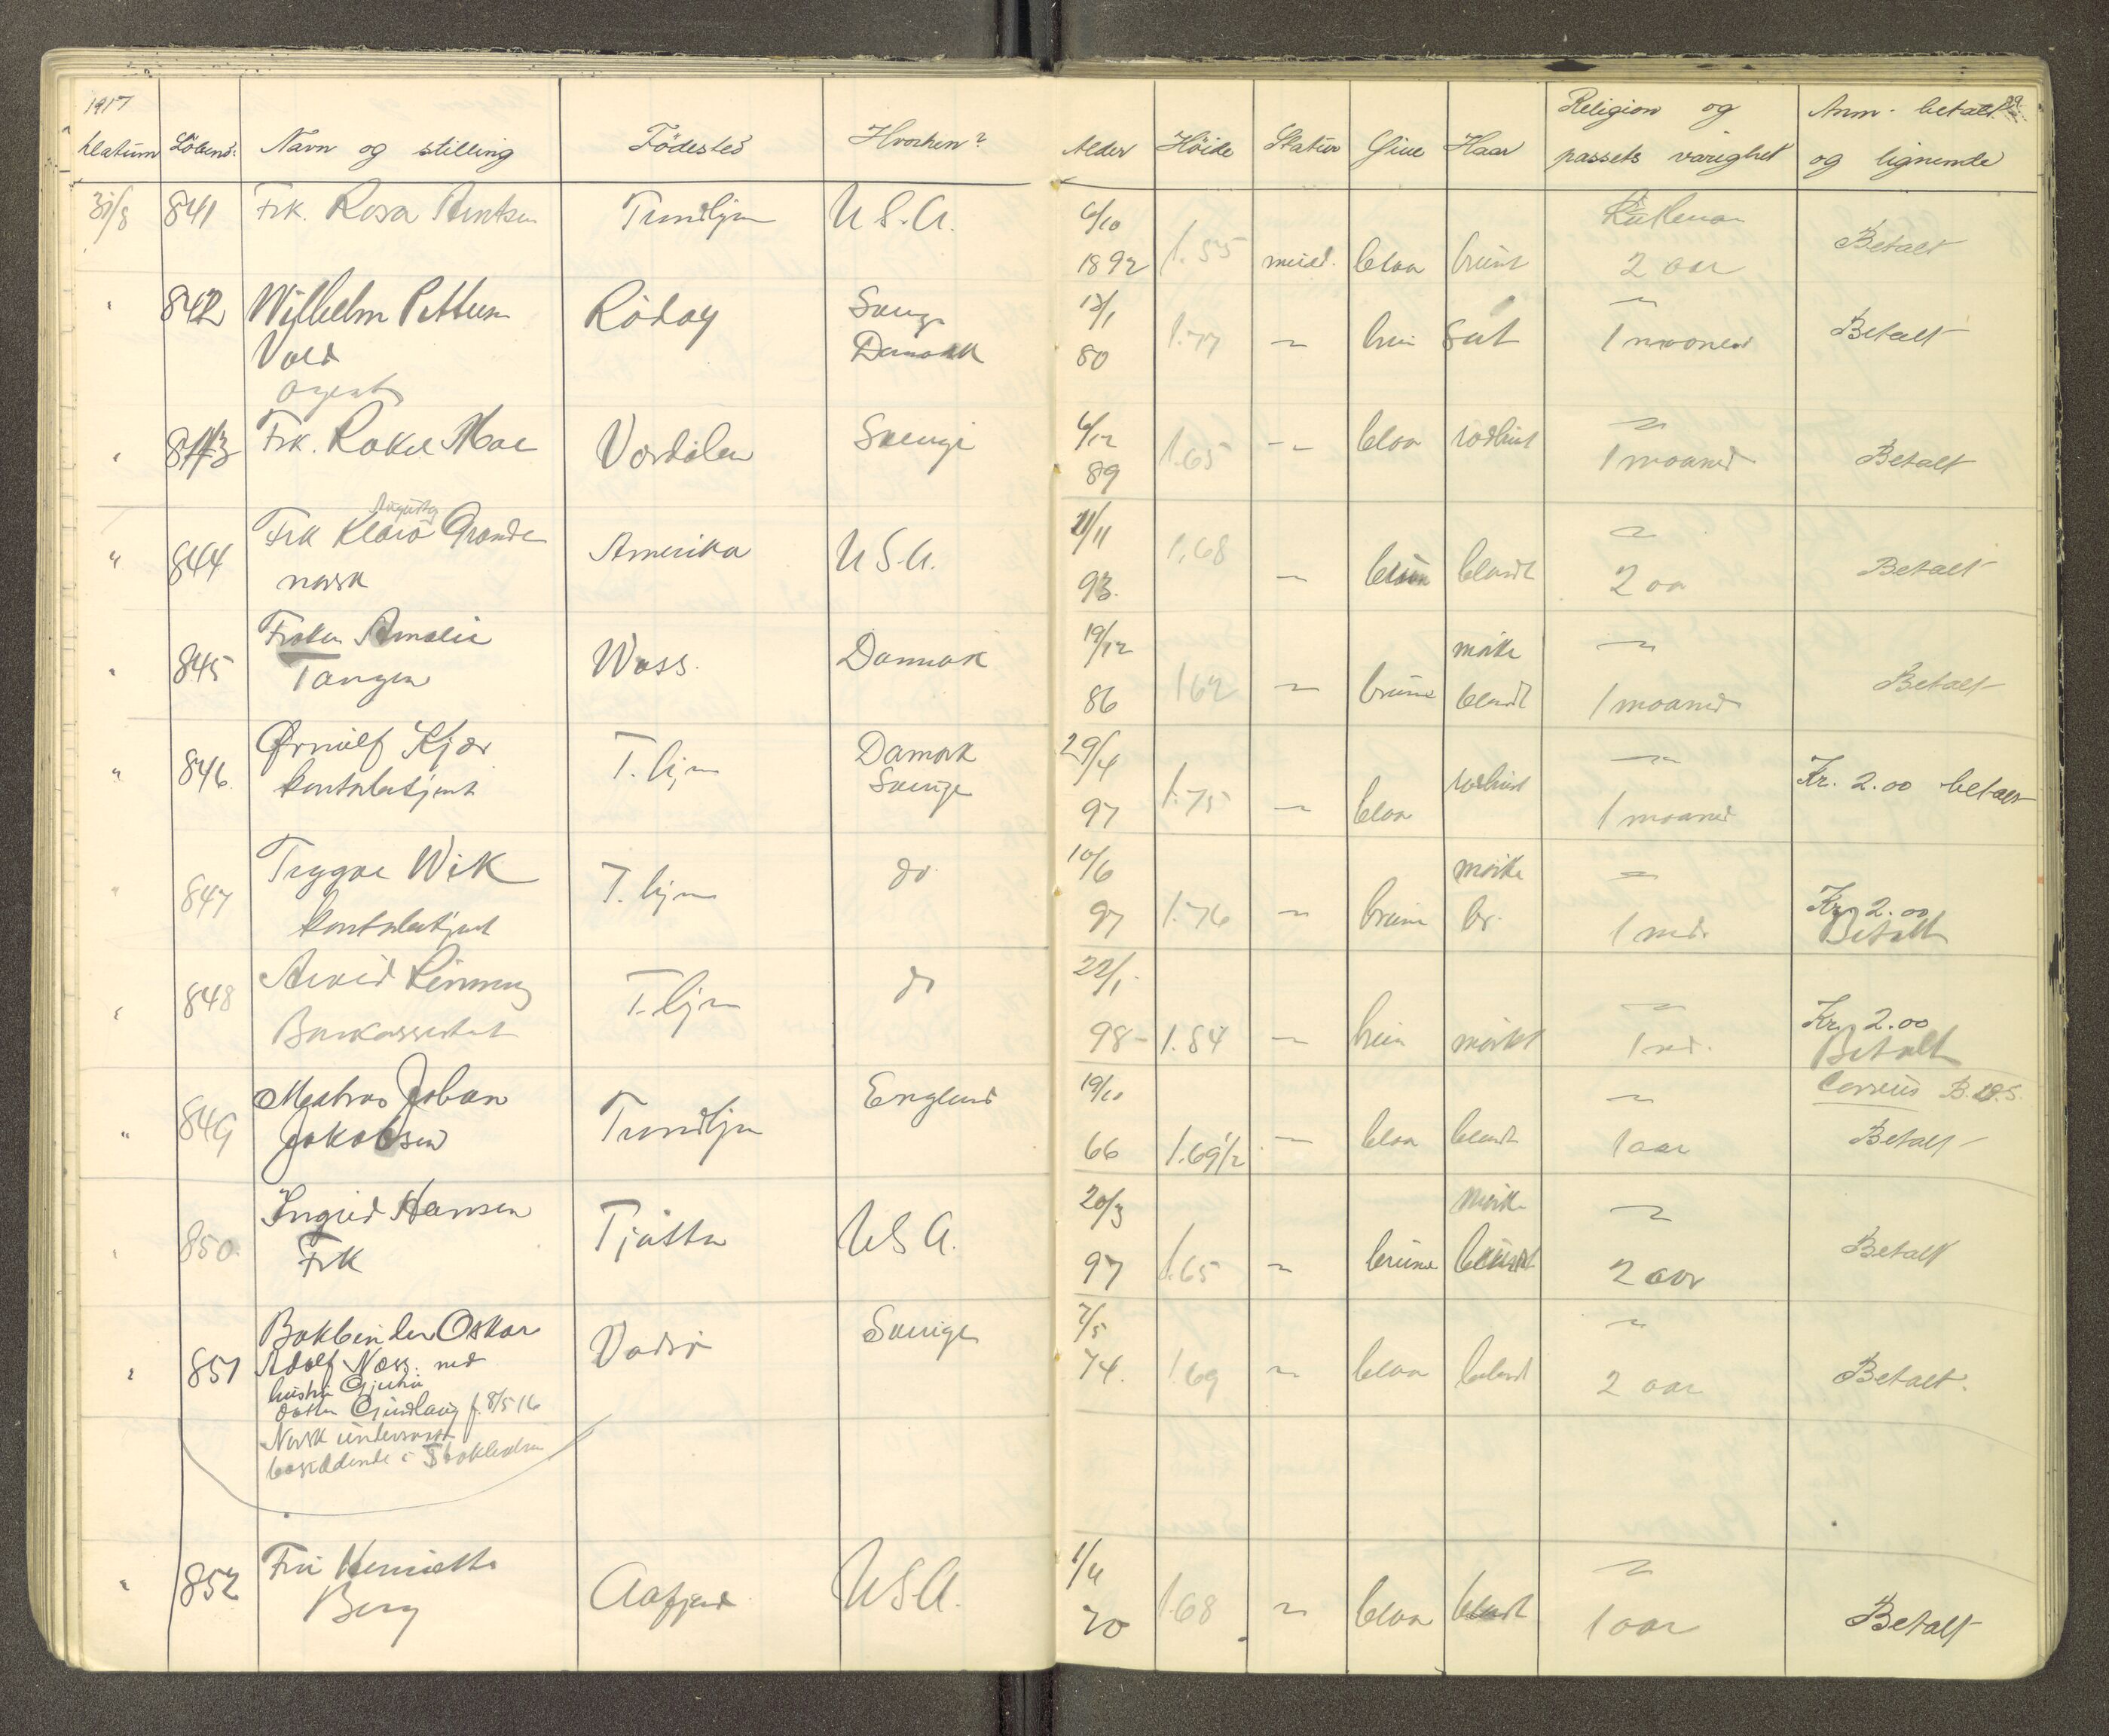 1917
Datum Löbenr. Navn og stilling Födested Hvorhen? Alder Höide Statur Öine Haar Religion og passets varighet Anm. betalt og lignende
31/8 841 Frk. Rosa Arntsen Trondhjem U.S.A. 6/10 1892 1.55 midd. blaa brunt 2 aar Betalt
" 842 Wilhelm Petter Vold agent Rödöy Sverige Danmark 13/1 80 1.77 " brun 1 maaned Betalt
" 843 Frk. Rakel Moe Værdalen Sverige 6/12 89 1.65 " blaa rödbrunt " 1 maaned Betalt
" 844 Frk Klara Augusta Grande norsk Amerika U.S.A. 11/11 93. 1.68 " blondt " 2 aar Betalt
" 845 Frøken Amalie Tangen Woss. Danmark 19/12 86 1.62 " brune mörke blondt " 1 maaned Betalt
" 846 Ørnulf Kjær kontorbetjent T.hjem Danmark Sverige 29/4 97 1.75 " blaa rödbrunt " 1 maaned Kr. 2.00 betalt
" 847 Trygve Wik kontorbetjent T.hjem do 10/6 97 1.76 " brune mörke br. " 1 md. Kr. 2.00 Betalt
" 848 Arvid Bankassistent T.hjem do 22/1 98 1.84 " brun mörkt " 1 md. Kr. 2.00 Betalt
" 849 Matros Johan Jakobsen Trondhjem England 19/10 66 1.69 1/2 " blaa blondt " 1 aar Betalt
" 850 Ingrid Hansen Frk Tjøtta U.S.A. 20/3 97 1.65 " brune mörke " 2 aar Betalt
" 851 Bokbinder Oskar Adolf Næss. med hustru datter Gudlaug f. 8/5 16 Norsk undersaatt bosiddende i Stokholm Vadsö Sverige 7/5 74. 1.69 " blaa blondt " 2 aar Betalt.
" 852 Fru Henriette Berg Aafjord U.S.A. 1/11 70 1.68 " blaa blondt " 1 aar Betalt